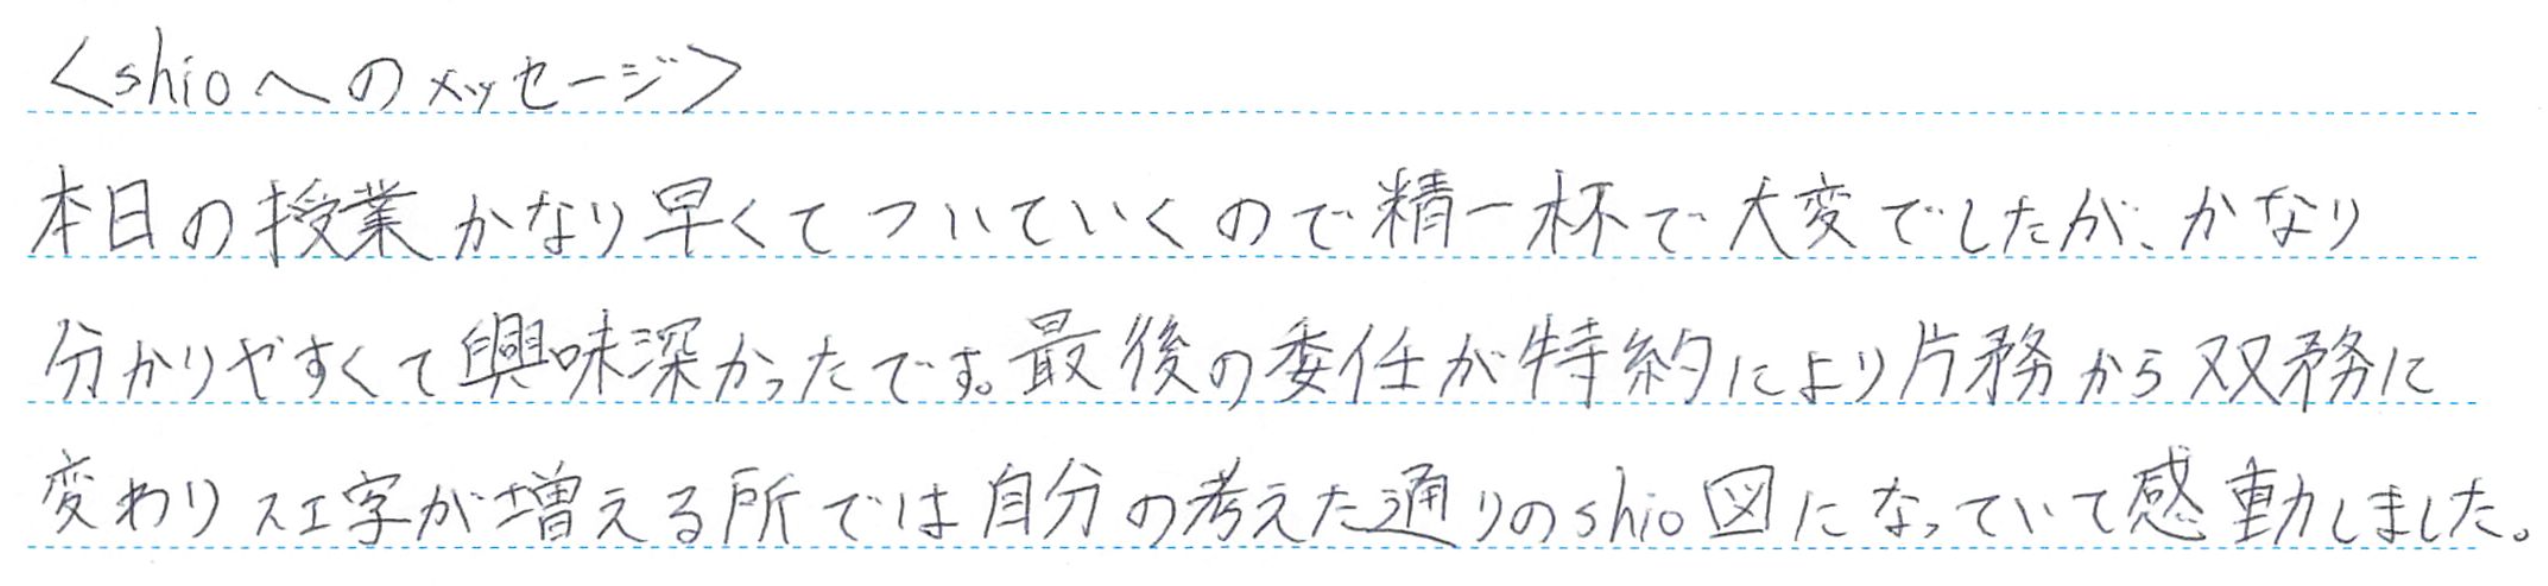 <shioへのメッセージ>
本日の授業かなり早くてついていくので精一杯で大変でしたが、かなり
分かりやすくて興味深かったです。最後の委任が特約により片務から双務に
変わりスエ字が増える所では自分の考えた通りのshio図になっていて感動しました。